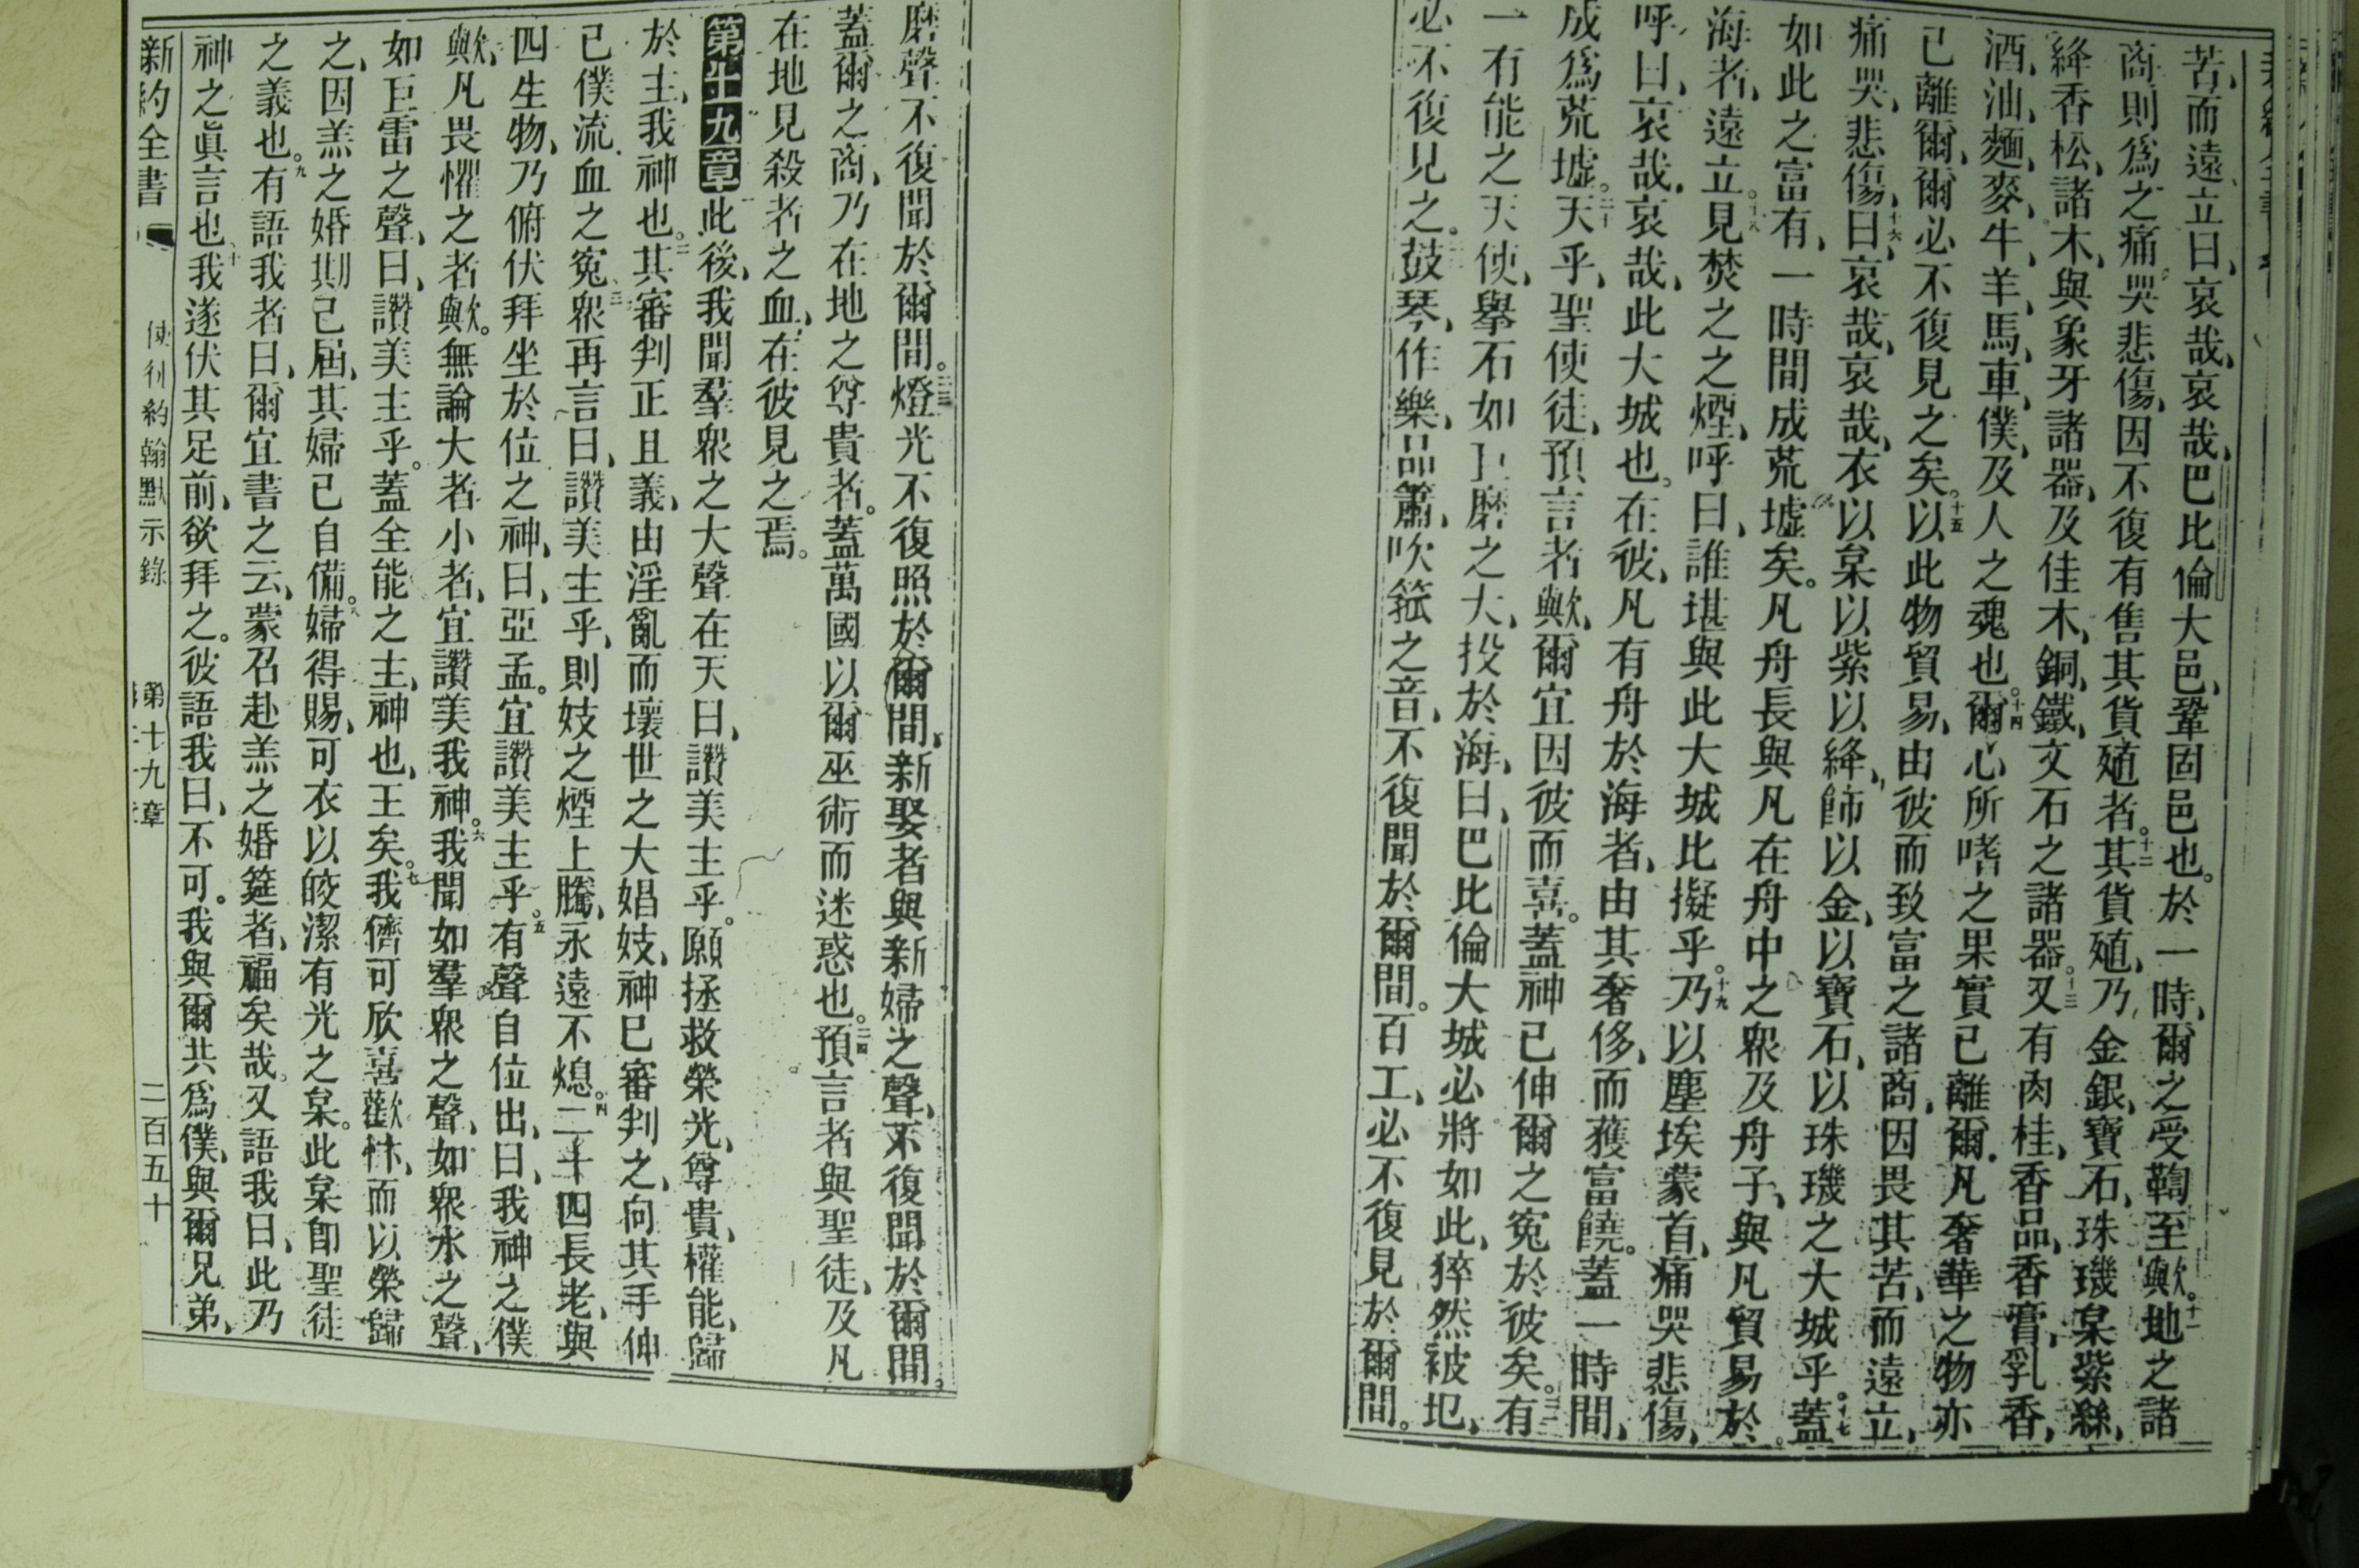 苦、而遠立曰、哀哉、哀哉、巴比倫大邑、鞏固邑也。於一時、爾之受鞫至歟。十一地之諸
商、則爲之痛哭悲傷、因不復有售其貨殖者。十二其貨殖、乃金銀、寶石、珠璣、枲、紫、絲、
絳、香松、諸木、與象牙諸器、及佳木、銅、鐵、文石之諸器。十三又有肉桂、香品、香膏、乳香、
酒、油、麵、麥、牛、羊、馬、車、僕、及人之魂也。十四爾心所嗜之果實已離爾、凡奢華之物亦
已離爾、爾必不復見之矣。十五以此物貿易、由彼而致富之諸商、因畏其苦、而遠立、
痛哭、悲傷、十六曰、哀哉、哀哉、衣以枲以紫以絳、飾以金、以寶石、以珠璣之大城乎。十七蓋
如此之富有、一時間成荒墟矣。凡舟長與凡在舟中之眾及舟子、與凡貿易於
海者、遠立。十八見焚之之煙、呼曰、誰堪與此大城比擬乎。十九乃以塵埃蒙首、痛哭悲傷、
呼曰、哀哉、哀哉、此大城也。在彼、凡有舟於海者、由其奢侈、而獲富饒。蓋一時間、
成爲荒墟。二十天乎、聖使徒、預言者歟、爾宜因彼而喜。蓋神已伸爾之冤於彼矣。二一有
一有能之天使、擧石如巨磨之大、投於海、曰、巴比倫大城必將如此、猝然被圯、
必不復見之。二二鼓琴、作樂、品簫、吹箛之音、不復聞於爾間。百工、必不復見於爾間。
磨聲不復聞於爾間。二三燈光不復照於爾間、新娶者與新婦之聲、不復聞於爾間。
蓋爾之商、乃在地之尊貴者。蓋萬國以爾巫術而迷惑也。二四預言者與聖徒、及凡
在地見殺者之血、在彼見之焉。
第十九章此後、我聞羣眾之大聲在天曰、讚美主乎。願拯救榮光、尊貴、權能、歸
於主、我神也。二其審判正且義、由淫亂而壞世之大娼妓、神已審判之、向其手伸
己僕流血之冤。三眾再言曰、讚美主乎、則妓之煙上騰、永遠不熄。四二十四長老、與
四生物、乃俯伏拜坐於位之神、曰、亞孟。宜讚美主乎。五有聲自位出、曰、我神之僕
歟、凡畏懼之者歟。無論大者小者、宜讚美我神。六我聞如羣眾之聲、如眾水之聲、
如巨雷之聲、曰、讚美主乎。蓋全能之主、神也、王矣。七我儕可欣喜歡忭、而以榮歸
之、因羔之婚期已屆、其婦已自備。八婦得賜、可衣以皎潔有光之枲。此枲卽聖徒
之義也。九有語我者曰、爾宜書之云、蒙召赴羔之婚筵者、福矣哉。又語我曰、此乃
神之眞言也、十我遂伏其足前、欲拜之。彼語我曰、不可。我與爾共爲僕、與爾兄弟、
新約全書 使徒約翰默示錄 第十九章 二百五十